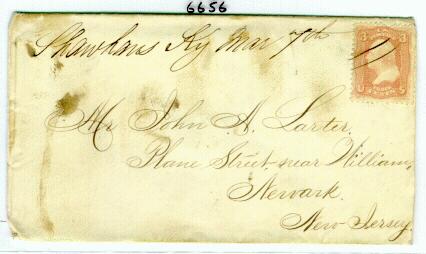 6656
Shawhans Ky Mar 7th
3 3
U S
Mr John A. Larter.
Plane Street near William,
Newark.
New Jersey.